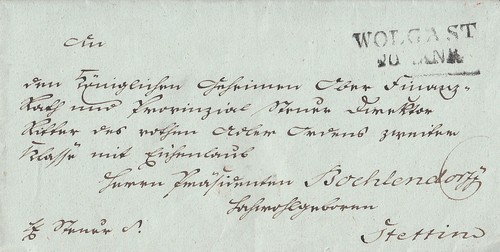 WOLGAST
20 JANR
An
den Königlichen Geheimen Ober Finanz-
Rath und Provinzial Steuer Direktor
Ritter des rothen Adler Ordens zweiter
Klasse mit Eichenlaub
Herrn Präsidenten Boehlendorff
Hochwohlgeboren
Stettin
Steuer S.